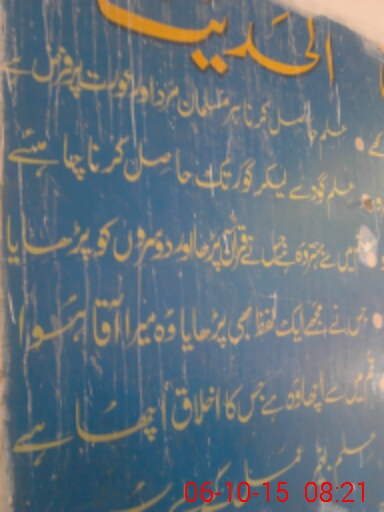 الحدیث
علم حاصل کرنا ہر مسلمان مرد اور عورت پر فرض ہے
علم گود سے لیکر گور تک حاصل کرنا چاہیئے
میں سے بہتر وہ ہے جس نے قرآن پڑھا اور دوسروں کو پڑھایا
جس نے مجھے ایک لفظ بھی پڑھایا وہ میرا آقا ہوا
میں سے اچھا وہ ہے جس کا اخلاق اچھا ہے
علم بغیر عمل کے
06-10-15 08:21